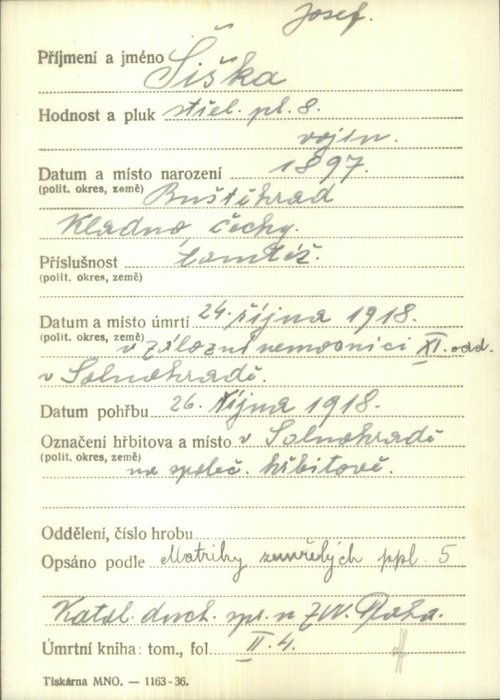 Josef.
Příjmení a jméno Šiška
Hodnost a pluk střel. pl. 8.
vojín.
Datum a místo narození 1897.
(polit. okres, země) Buštěhrad
Kladno, čechy.
Příslušnost tamtéž.
(polit. okres, země)
Datum a místo úmrtí 24. října 1918.
(polit. okres, země) v záložní nemocnici XI. odd.
v Solnohradě.
Datum pohřbu 26. října 1918.
Označení hřbitova a místo v Solnohradě
(polit. okres, země) na společ. hřbitově.
Oddělení, číslo hrobu
Opsáno podle Matriky zemřelých ppl. 5
Katol. duch. spr. u ZVV. Praha.
Úmrtní kniha: tom., fol. II. 4.
Tiskárna MNO. — 1163-36.